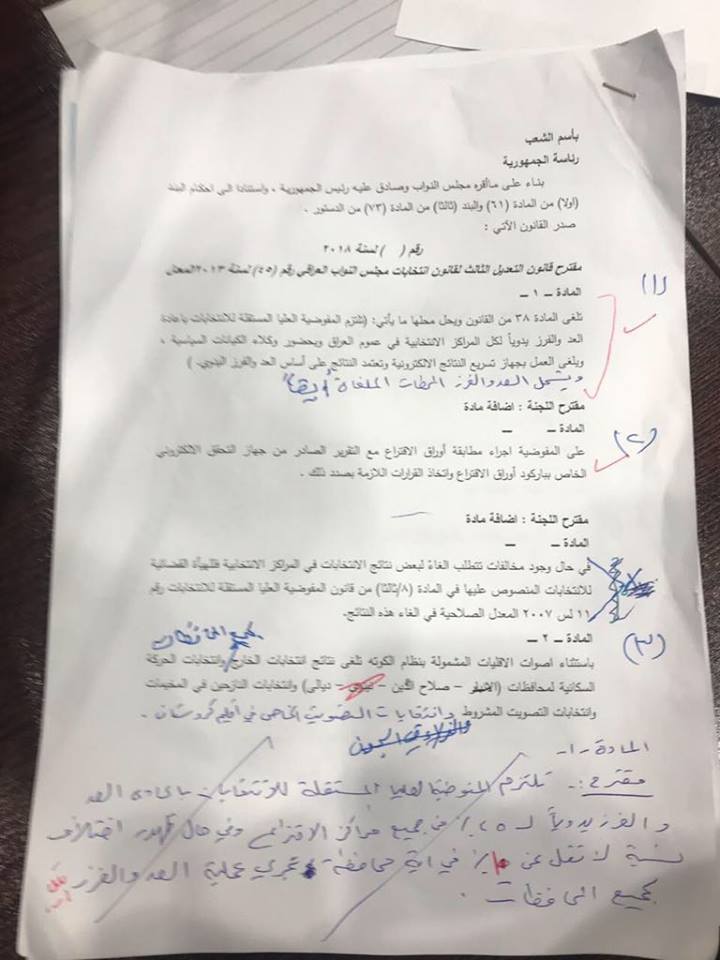 بأسم الشعب
رئاسة الجمهورية
بناء على ماأقره مجلس النواب وصادق عليه رئيس الجمهورية ، واستنادا الى احكام البند
(اولا) من المادة (٦١) والبند (ثالثا) من المادة (٧٣) من الدستور .
صدر القانون الآتي :
رقم ( ) لسنة ٢٠١٨
مقترح قانون التعديل الثالث لقانون انتخابات مجلس النواب العراقي رقم (٤٥) لسنة ٢٠١٣ المعدل
(١)
المادة – ١ –
تلغى المادة ٣٨ من القانون ويحل محلها ما يأتي: (تلتزم المفوضية العليا المستقلة للانتخابات باعادة
العد والفرز يدوياً لكل المراكز الانتخابية في عموم العراق وبحضور وكلاء الكيانات السياسية ،
ويلغى العمل بجهاز تسريع النتائج الالكترونية وتعتمد النتائج على أساس العد والفرز اليدوي. )
ويشمل العد والفرز المحطات الملغاة أيضاً
مقترح اللجنة : اضافة مادة
المادة – –
(٢)
على المفوضية اجراء مطابقة أوراق الاقتراع مع التقرير الصادر من جهاز التحقق الالكتروني
الخاص بباركود أوراق الاقتراع واتخاذ القرارات اللازمة بصدد ذلك .
مقترح اللجنة : اضافة مادة
المادة – –
في حال وجود مخالفات تتطلب الغاءً لبعض نتائج الانتخابات في المراكز الانتخابية فللهيأة القضائية
للانتخابات المنصوص عليها في المادة (٨/ثالثا) من قانون المفوضية العليا المستقلة للانتخابات رقم
١١ لس ٢٠٠٧ المعدل الصلاحية في الغاء هذه النتائج.
(٣)
المادة – ٢ –
لجميع المحافظات
باستثناء اصوات الاقليات المشمولة بنظام الكوته تلغى نتائج انتخابات الخارج وانتخابات الحركة
السكانية لمحافظات (الانبار – صلاح الدين – نينوى – ديالى) وانتخابات النازحين في المخيمات
وانتخابات التصويت المشروط وانتخابات التصويت الخاص في اقليم كردستان .
المادة - ١ -
مقترح :- تلتزم المفوضية العليا المستقلة للانتخابات باعادة العد
والفرز يدوياً لـ ٢٥٪ في جميع مراكز الاقتراع وفي حال ظهور اختلاف
نسبة لا تقل عن ٪ في اية محافظة تجري عملية العد والفرز
لجميع المحافظات .